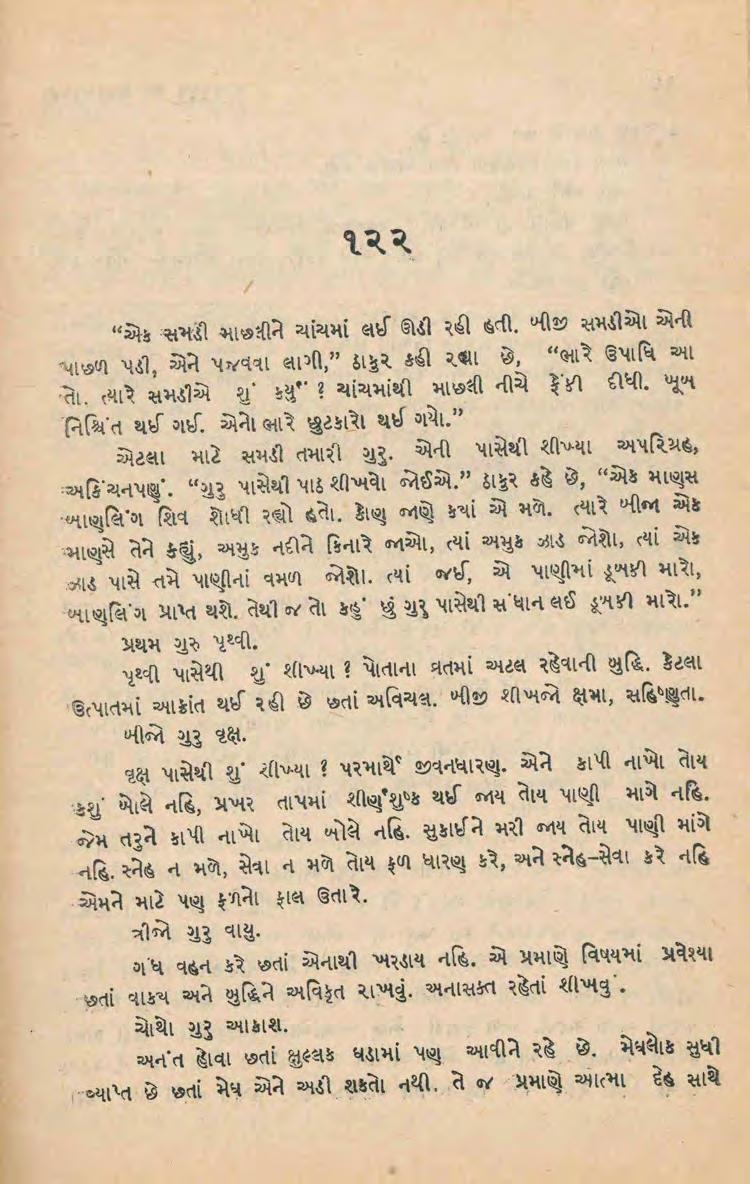 ૧૨૨
“એક સમડી માછલીને ચાંચમાં લઈ ઊડી રહી હતી. બીજી સમડીઓ એની
પાછળ પડી, એને પજવવા લાગી,” ઠાકુર કહી રહ્યા છે, “ભારે ઉપાધિ આ
તો. ત્યારે સમડીએ શું કર્યું ? ચાંચમાંથી માછલી નીચે ફેંકી દીધી. ખૂબ
નિશ્ચિંત થઈ ગઈ. એનો ભારે છુટકારો થઈ ગયો.”
એટલા માટે સમડી તમારી ગુરુ. એની પાસેથી શીખ્યા અપરિગ્રહ,
અકિંચનપણું. “ગુરુ પાસેથી પાઠ શીખવો જોઈએ.” ઠાકુર કહે છે, “એક માણસ
બાણલિંગ શિવ શોધી રહ્યો હતો. કોણ જાણે ક્યાં એ મળે. ત્યારે બીજા એક
માણસે તેને કહ્યું, અમુક નદીને કિનારે જાઓ, ત્યાં અમુક ઝાડ જોશો, ત્યાં એક
ઝાડ પાસે તમે પાણીનાં વમળ જોશો. ત્યાં જઈ, એ પાણીમાં ડૂબકી મારો,
બાણલિંગ પ્રાપ્ત થશે. તેથી જ તો કહું છું ગુરુ પાસેથી સંધાન લઈ ડૂબકી મારો.”
પ્રથમ ગુરુ પૃથ્વી.
પૃથ્વી પાસેથી શું શીખ્યા ? પોતાના વ્રતમાં અટલ રહેવાની બુદ્ધિ. કેટલા
ઉત્પાતમાં આક્રાંત થઈ રહી છે છતાં અવિચલ. બીજી શીખજો ક્ષમા, સહિષ્ણુતા.
બીજો ગુરુ વૃક્ષ.
વૃક્ષ પાસેથી શું શીખ્યા ? પરમાર્થે જીવનધારણ. એને કાપી નાખો તોય
કશું બોલે નહિ, પ્રખર તાપમાં શીર્ણશુષ્ક થઈ જાય તોય પાણી માગે નહિ.
જેમ તરુને કાપી નાખો તોય બોલે નહિ. સુકાઈને મરી જાય તોય પાણી માંગે
નહિ. સ્નેહ ન મળે, સેવા ન મળે તોય ફળ ધારણ કરે, અને સ્નેહ-સેવા કરે નહિ
એમને માટે પણ ફળનો ફાલ ઉતારે.
ત્રીજો ગુરુ વાયુ.
ગંધ વહન કરે છતાં એનાથી ખરડાય નહિ. એ પ્રમાણે વિષયમાં પ્રવેશ્યા
છતાં વાક્ય અને બુદ્ધિને અવિકૃત રાખવું. અનાસક્ત રહેતાં શીખવું.
ચોથો ગુરુ આકાશ.
અનંત હોવા છતાં ક્ષુલ્લક ઘડામાં પણ આવીને રહે છે. મેઘલોક સુધી
વ્યાપ્ત છે છતાં મેઘ એને અડી શકતો નથી. તે જ પ્રમાણે આત્મા દેહ સાથે